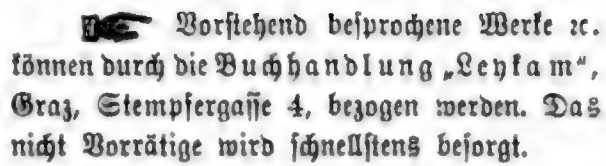 Vorstehend besprochene Werke ꝛc.
können durch die Buchhandlung „Leykam“,
Graz, Stempfergasse 4, bezogen werden. Das
nicht Vorrätige wird schnellstens besorgt.